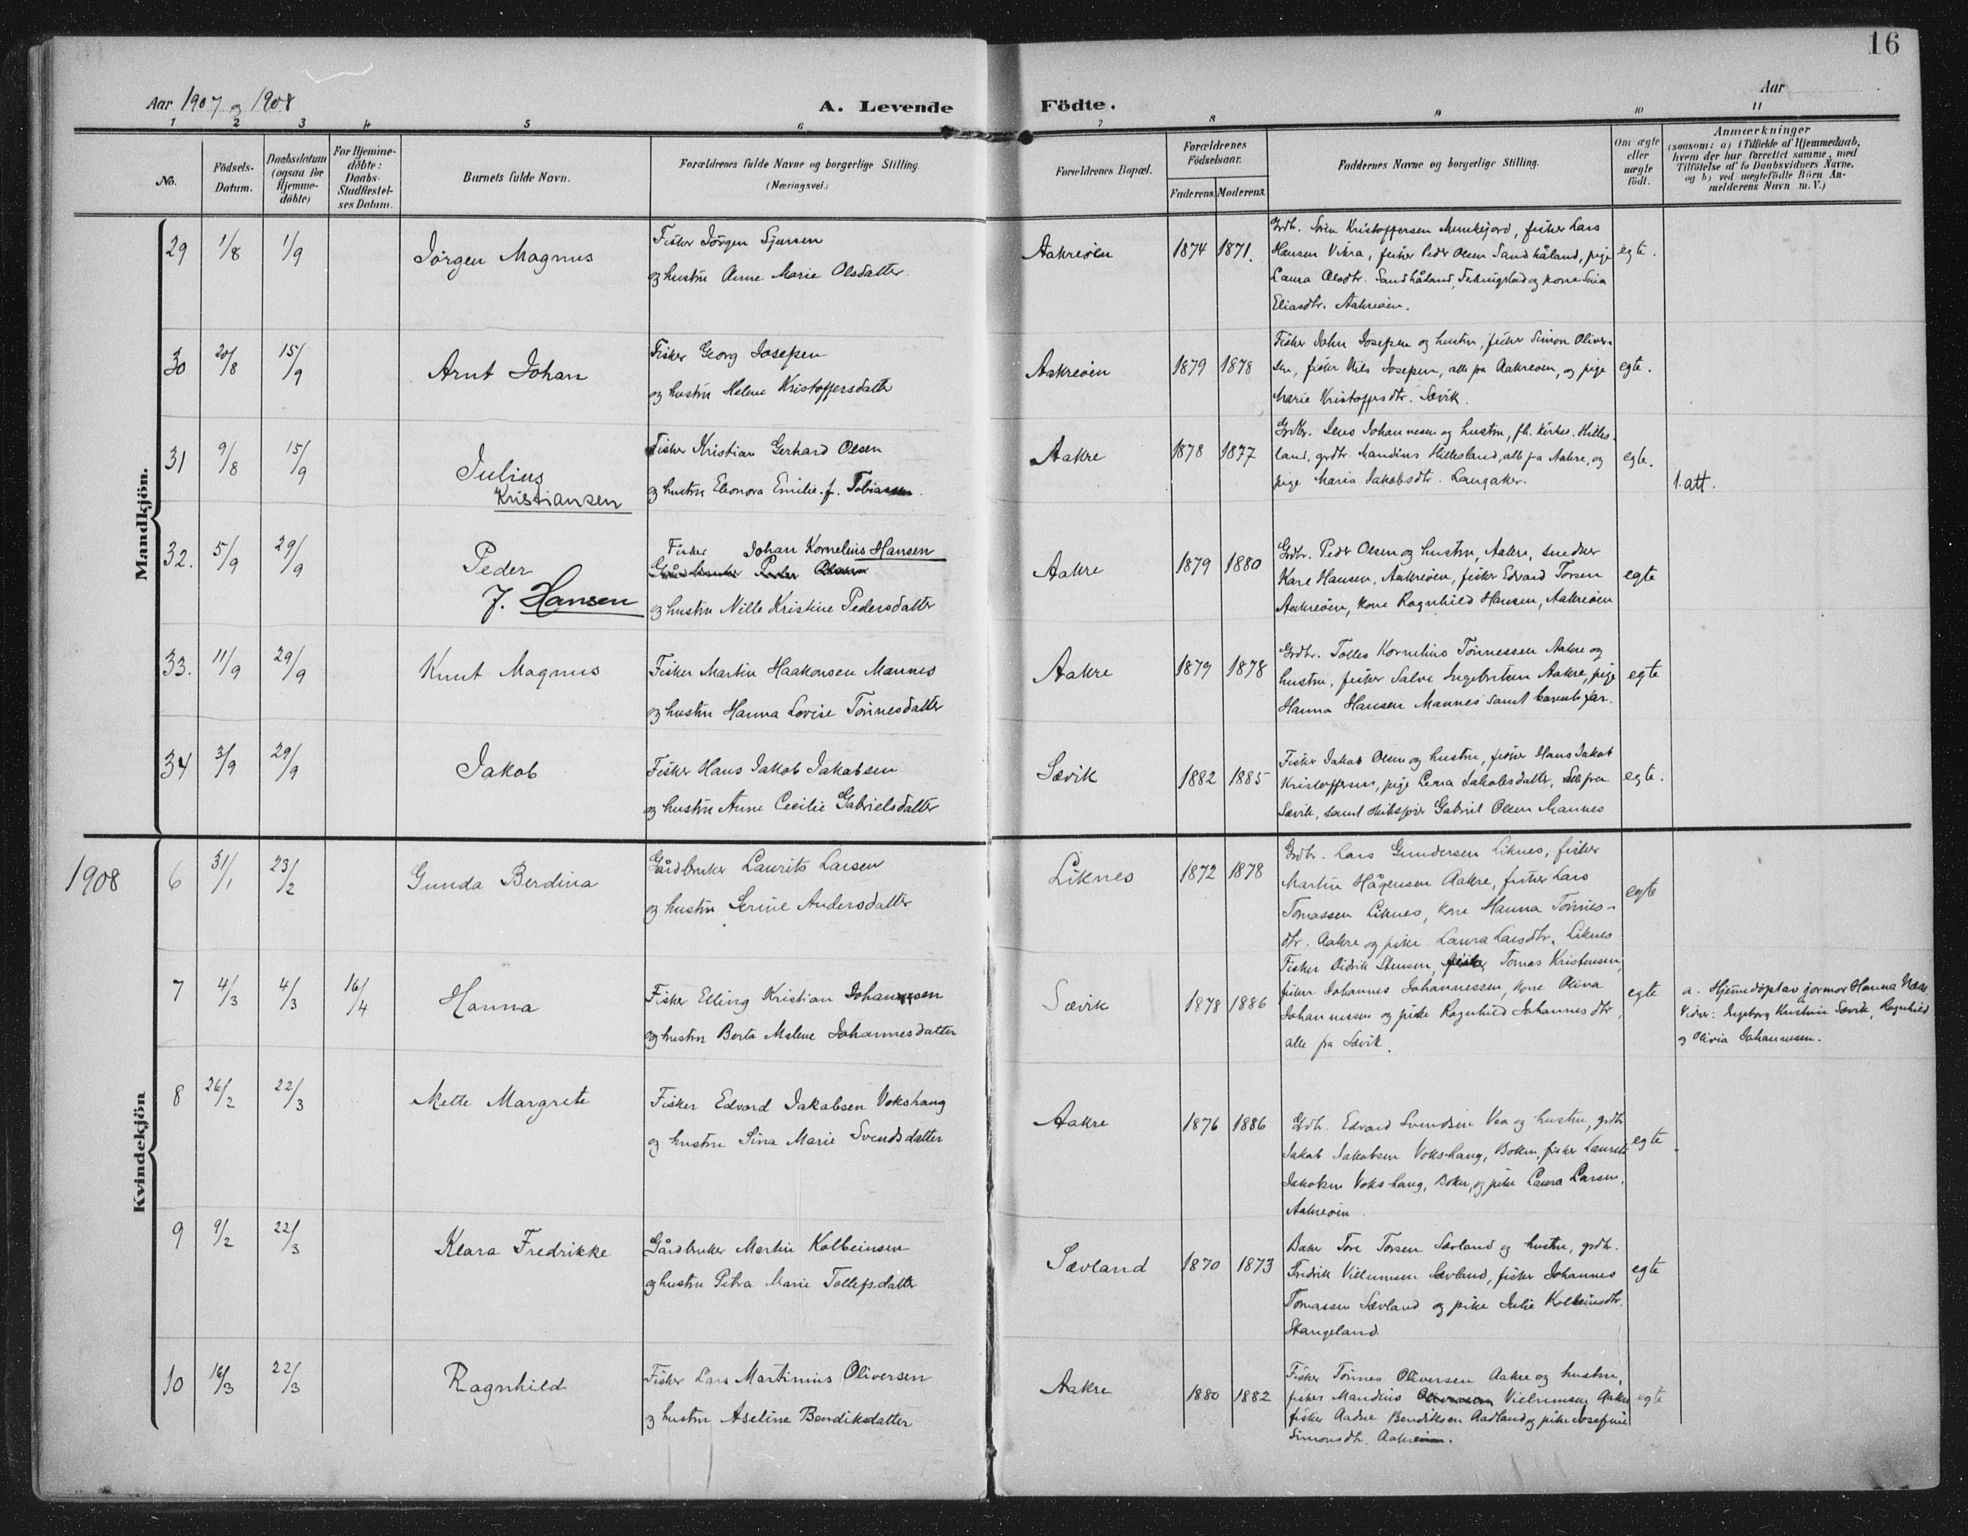 16
Aar 1907 og 1908
A. Levende
Födte.
Aar
1 2 3 4 5 6 7 8 9 10 11
No.
Födsels-
Datum.
Daabsdatum
(ogsaa for
Hjemme-
döbte)
For Hjemme-
döbte:
Daabs-
Stadfæstel-
ses Datum.
Barnets fulde Navn.
Forældrenes fulde Navne og borgerlige Stilling.
(Næringsvei.)
Forældrenes Bopæl.
Forældrenes
Födselsaar.
Faderens.
Moderens.
Faddernes Navne og borgerlige Stilling.
Om ægte
eller
uægte
födt.
Anmærkninger
(saasom: a) i Tilfælde af Hjemmedaab,
hvem der har forrettet samme, med
Tilföielse af to Daabsvidners Navne.
og b) ved uægtefödte Börn An-
melderens Navn m. V.)
Mandkjön.
29 1/8 1/9 Jörgen Magnus
Fisker Jörgen Sjursen
og hustru Anne Marie Olsdatter
Aakreöen 1874 1871.
Grdb. Sven Kristoffersen Munkejord, fisker Lars
Hansen Vikra, fisker Peder Olsen Sandhåland, pige
Laura Olsdtr. Sandhåland, Ferkingstad og kone Sina
Eliasdtr. Aakreöen.
egte.
30 20/8 15/9 Arnt Johan
Fisker Georg Josefsen
og hustru Helene Kristoffersdatter
Aakreöen 1879 1878
Fisker John Josefsen og hustru, fisker Simon Oliver-
sen, fisker Nils Josefsen, alle fra Aakreöen, og pige
Marie Kristoffersdtr. Sævik.
egte.
31 9/8 15/9 Julius
Kristiansen
Fisker Kristian Gerhard Olsen
og hustru Eleonora Emilie f. Tobiassen.
Aakre 1878 1877
Grdbr. Johannesen og hustru, Hilles-
land, grdbr. Mandius Hillesland, alle fra Aakre, og
pige Maria Jakobsdtr. Langaker.
egte.
1. att.
32. 5/9 29/9 Peder
J. Hansen
Fisker Johan Kornelius Hansen
Gårdbruker Peder Olsen
og hustru Nille Kristine Pedersdatter
Aakre 1879 1880
Grdbr. Peder Olsen og hustru, Aakre, snedker
Kare Hansen, Aakreöen, fisker Edvard Torsen
Aakreöen, kone Ragnhild Hansen, Aakreöen
egte
33. 11/9 29/9 Knut Magnus
Fisker Martin Haakonsen Mannes
og hustru Hanna Lovise Tönnesdatter
Aakre 1879 1878
Grdbr. Tolles Kornelius Tönnessen Aakre og
hustru, fisker Salve Ingebritsen Aakre, pige
Hanna Hansen Mannes samt barnets far.
egte
34 3/9 29/9 Jakob
Fisker Hans Jakob Jakobsen
og hustru Anne Cecilie Gabrielsdatter
Sævik 1882 1885
Fisker Jakob Olsen og hustru, fisker Hans Jakob
Kristoffersen, pige Lena Jakobsdatter, alle fra
Sævik, samt Gabriel Olsen Mannes
egte.
1908
Kvindekjön
6 31/1 23/2 Gunda Berdina
Gårdbruker Laurits Larsen
og hustru Serine Andersdatter
Liknes 1872 1878
Grdbr. Lars Gundersen Liknes, fisker
Martin Hågensen Aakre, fisker Lars
Tomassen Liknes, kone Hanna Tönnes-
dtr. Aakre og pike Laura Larsdtr. Liknes
egte
7 4/3 4/3 16/4 Hanna
Fisker Elling Kristian Johannesen
og hustru Berta Malene Johannesdatter
Sævik 1878 1886
Fisker Didrik Stensen, fisker Tomas Kristensen,
fisker Johannes Johannessen, kone Oliva
Johannessen og pike Ragnhild Johannesdtr,
alle fra Sævik.
egte
a. Hjemmedöpt av jormor Hanna Næss
Vidner: Ingeborg Kristine Sævik, Ragnhild
og Olivia Johannesen.
8 26/2 22/3 Mette Margrete
Fisker Edvard Jakobsen Vokshaug
og hustru Sina Marie Svendsdatter
Aakre 1876 1886
Grdbr. Edvard Svendsen Vea og hustru, grdbr.
Jakob Jakobsen Vokshaug, Bokn, fisker Laurits
Jakobsen Vokshaug, Bokn, og pike Laura Larsen,
Aakreöen
egte
9 9/2 22/3 Klara Fredrikke
Gårdbruker Martin Kolbeinsen
og hustru Petra Marie Tollefsdatter
Sævland 1870 1873
Baker Tore Torsen Sævland og hustru, grdbr.
Fredrik Vielumsen Sævland, fisker Johannes
Tomassen Sævland og pike Julie Kolbeinsdtr.
Stangeland
egte
10 16/3 22/3 Ragnhild
Fisker Lars Martinius Oliversen
og hustru Aseline Bendiksdatter
Aakre 1880 1882
Fisker Tönnes Oliversen Aakre og hustru,
fisker Mandius Vielumsen Aakre
fisker Aadne Bendiksen Aadland og pike Josefine
Simonsdtr. Aakreöen.
egte